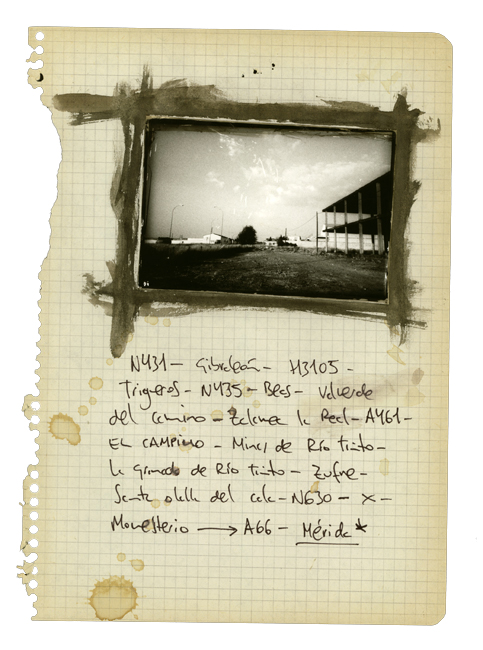 N431 - Gibraleón - H3105 -
Trigueros - N435 - Beas - Valverde
del camino - Zalamea la Real - A461 -
EL CAMPIMO - Minas de Río tinto -
la granada de Río tinto - Zufre -
Santa olalla del cala - N630 - X -
Monesterio → A66 - Mérida*